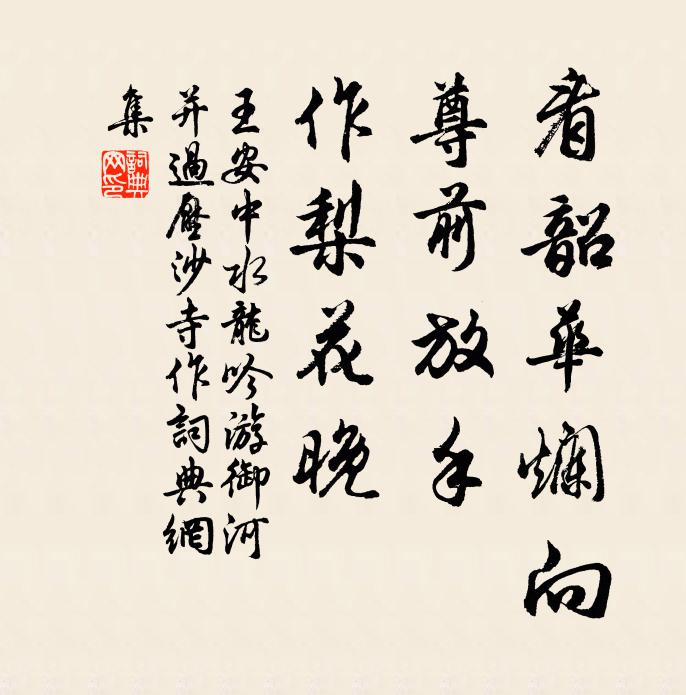 看韶華爛向
尊前放手
作梨花晚
王安中水龍吟游御河
并過壓沙寺作詞典網
集
詞典網印